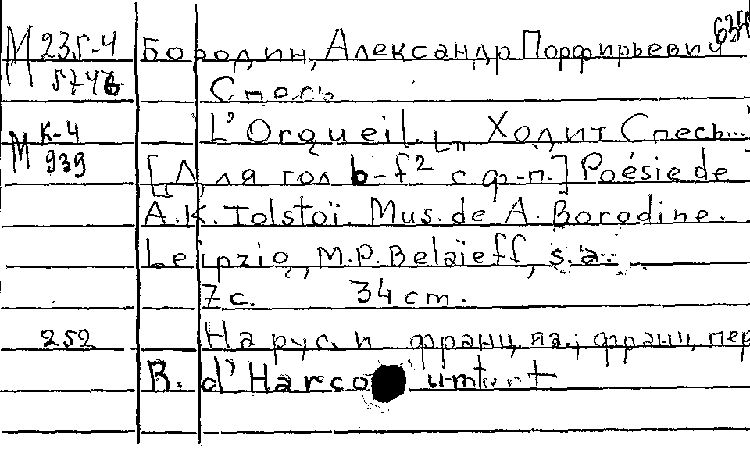 М 235-4 Бородин, Александр Порфирьевич
5746 Спесь
М К-4 L'Orgueil. „Ходит Спесь...
939 [Для гол b-f² с ф-п.] Poésie de
A.K. Tolstoï. Mus. de A. Borodine.
Leipzig, M.P. Belaïeff, s.a.
7 с. 34 cm.
252 На рус. и франц. яз.; франц. пер.
B. d'Harco